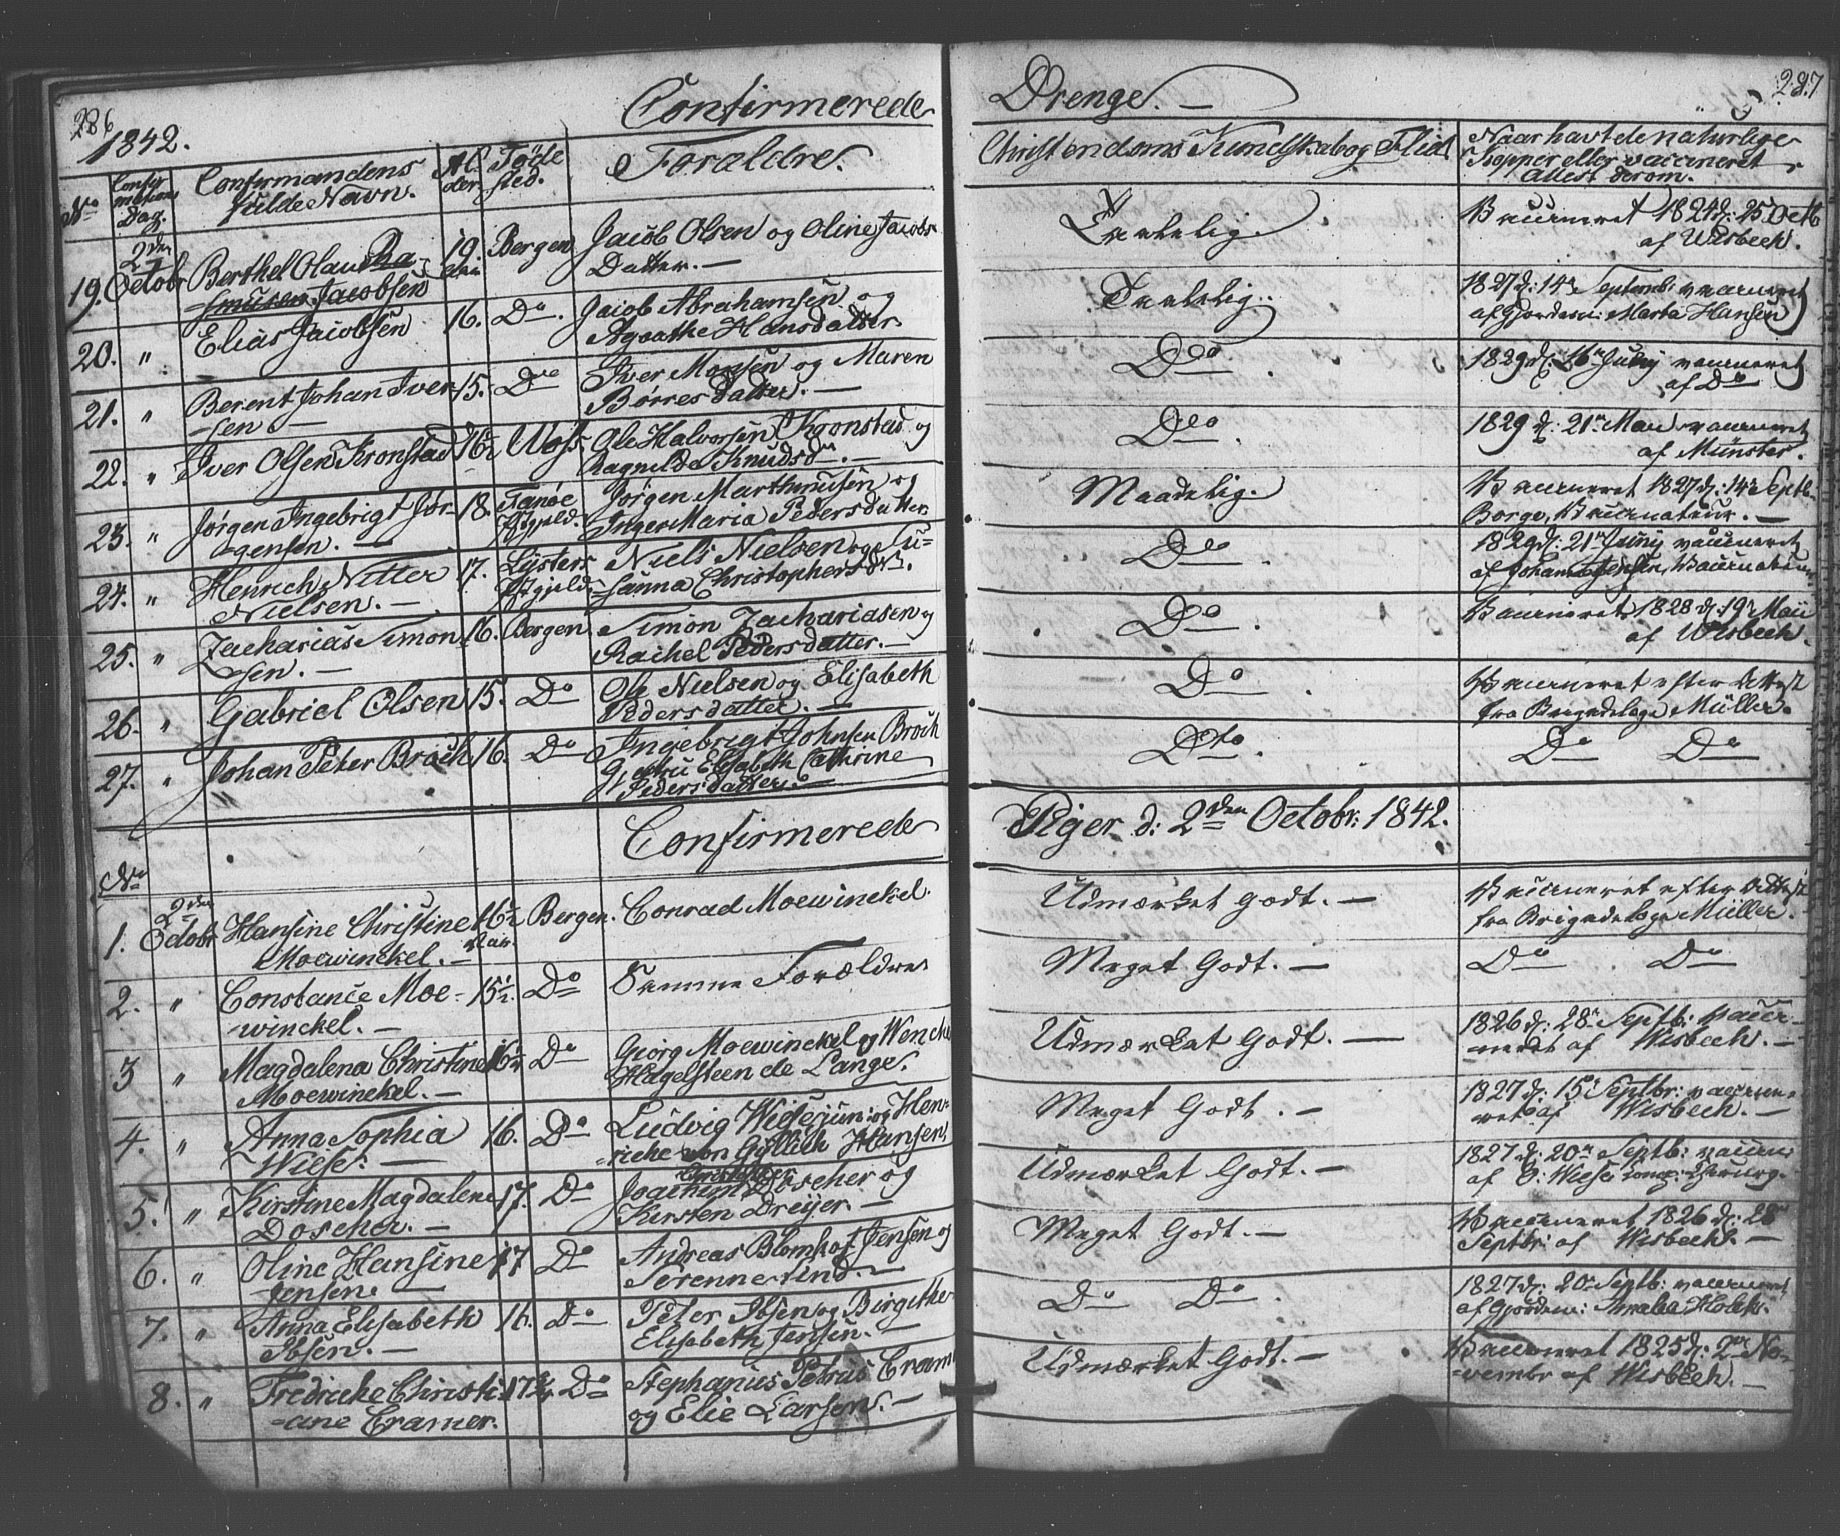 286
1842.
Confirmerede
Drenge. —
287
No
Confirmations Dag.
Confirmandens fulde Navn.
Alder
Føde sted.
Forældre.
Christendoms Kundskab og Flid
Naar havt de naturlige
Kopper eller vaccineret
Attest derom.
19. 2den Octobr Berthel Olau Ra-
smusen Jacobsen
19. Aar
Bergen
Jacob Olsen og Oline Jacobs
Datter. —
Taalelig.
Vaccineret 1824 d: 25 Octb
af Wisbech.
20. " Elias Jacobsen 16. Do.
Jacob Abrahamsen og
Agathe Hansdatter
Taalelig.
1827 d: 14de Septemb: vaccineret
af Gjordem: Marta Hansen
21. " Berent Johan Iver-
sen —
15. Do
Iver Monsen og Maren
Børresdatter. —
Do.
1829 d. 16de Juny vaccineret
af Do
22. " Iver Olsen Kronstad 16½ Woss
Ole Halvorsen Kronstad og
Ragnilda Knudsdr. —
Do.
1829 d. 21de Mai vaccineret
af Münster.
23. " Jørgen Ingebrigt Jør-
gensen. —
18. Fanøe
Pgjeld
Jørgen Marthinusen og
Inger Maria Pedersdatter
Maadelig.
Vaccineret 1827 d: 14de Septb.
Borge, Vaccinateur. —
24. " Henrich Nitter
Nielsen. —
17. Lysters
Pgjeld
Niels Nielsen og Su-
sanna Christophersdr.
Do.
1829 d: 21de Juny vaccineret
af Johan Jensen, Vaccinateur
25. " Zacharias Simon-
sen. —
16. Bergen
Simon Zachariasen og
Rachel Pedersdatter. —
Do.
Vaccineret 1828 d. 19de Maii
af Wisbech.
26. " Gabriel Olsen 15. Do
Ole Nielsen og Elisabeth
Pedersdatter. —
Do.
Vaccineret efter Attest
fra Brigadelæge Müller.
27. " Johan Peter Broch 16. Do
Ingebrigt Johnsen Broch
Gjertru Elisabeth Cathrine
Pedersdatter. —
Dto.
Do Do
Confirmerede
Piger d: 2den Octobr: 1842.
No
1. 2den Octobr Hansine Christine
Moewinckel. —
16½ Aar.
Bergen.
Conrad Moewinckel.
Udmærket Godt. —
Vaccineret efter Attest
fra Brigadelæge Müller.
2. " Constance Moe-
winckel. —
15½. Do
Samme Forældre
Meget Godt. —
Do Do
3 " Magdalena Christine
Moewinckel. —
16½ Do
Georg Moewinckel og Wencke
Hagelsteen de Lange.
Udmærket Godt. —
1826 d: 28de Septb: vacci-
neret af Wisbech. —
4. " Anna Sophia
Wiese. —
16. Do
Ludvig Wiese jun: og Hen-
ricke von Gyllich Hansen
Meget Godt. —
1827 d. 15de Septbr: vaccine-
ret af Wisbech. —
5. " Kirstine Magdalene
Doscher. —
17. Do
Christopher
Joachim Doscher og
Kirsten Dreyer. —
Udmærket Godt. —
1827 d: 20de Septb: vaccine:
af O: Wiese Comp: Chirurg.
6. " Oline Hansine
Jensen —
17 Do
Andreas Blomhof Jensen og
Serenne Lind. —
Meget Godt. —
Vaccineret 1826 d. 28de
Septbr: af Wisbech. —
7. " Anna Elisabeth
Ibsen. —
16. Do
Peter Ibsen og Birgithe
Elisabeth Jensen. —
Do Do.
1827 d: 20de Septb: vaccineret
af Gjordem: Amalia Holck.
8. " Fredricke Christi-
ane Cramer.
17½ Do
Stephanus Petrus Cramer
og Elie Larsen. —
Udmærket Godt. —
Vaccineret 1825 d. 2de No-
vembr af Wisbech. —